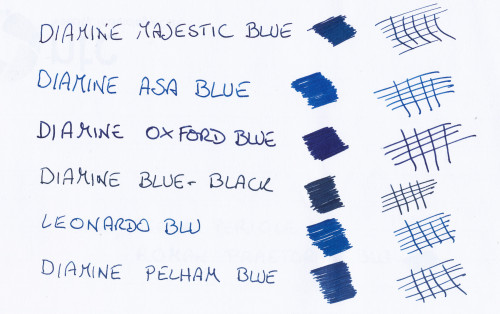 DIAMINE MAJESTIC BLUE
DIAMINE ASA BLUE
DIAMINE OXFORD BLUE
DIAMINE BLUE-BLACK
LEONARDO BLU
DIAMINE PELHAM BLUE